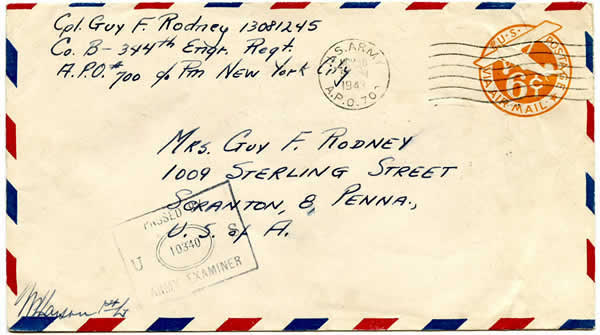 Cpl. Guy F. Rodney 13081245
Co. B - 344th Engr. Regt.
A.P.O. #700 c/o Pm New York City
U.S. ARMY
1943
A.P.O. 70
U.S. POSTAGE
6¢
VIA AIR MAIL
Mrs. Guy F. Rodney
1009 Sterling Street
Scranton, 8, Penna.,
U.S. of A.
PASSED
U 10340
ARMY EXAMINER
1st Lt